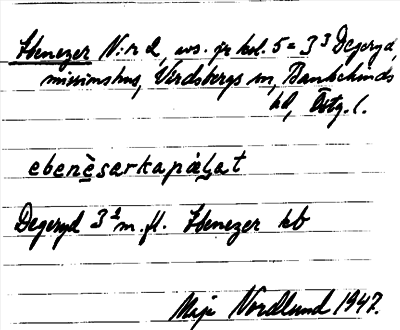 Ebenezer N:r 2, ws. fr kol. 5 = 3³ Degeryd,
missionshus, Vårdsbergs sn, Bankekinds
hd, Östg. l.
ebenè̱sarkapäḻat
Degeryd 3² m. fl. Ebenezer kb
Maji Nordlund 1947.